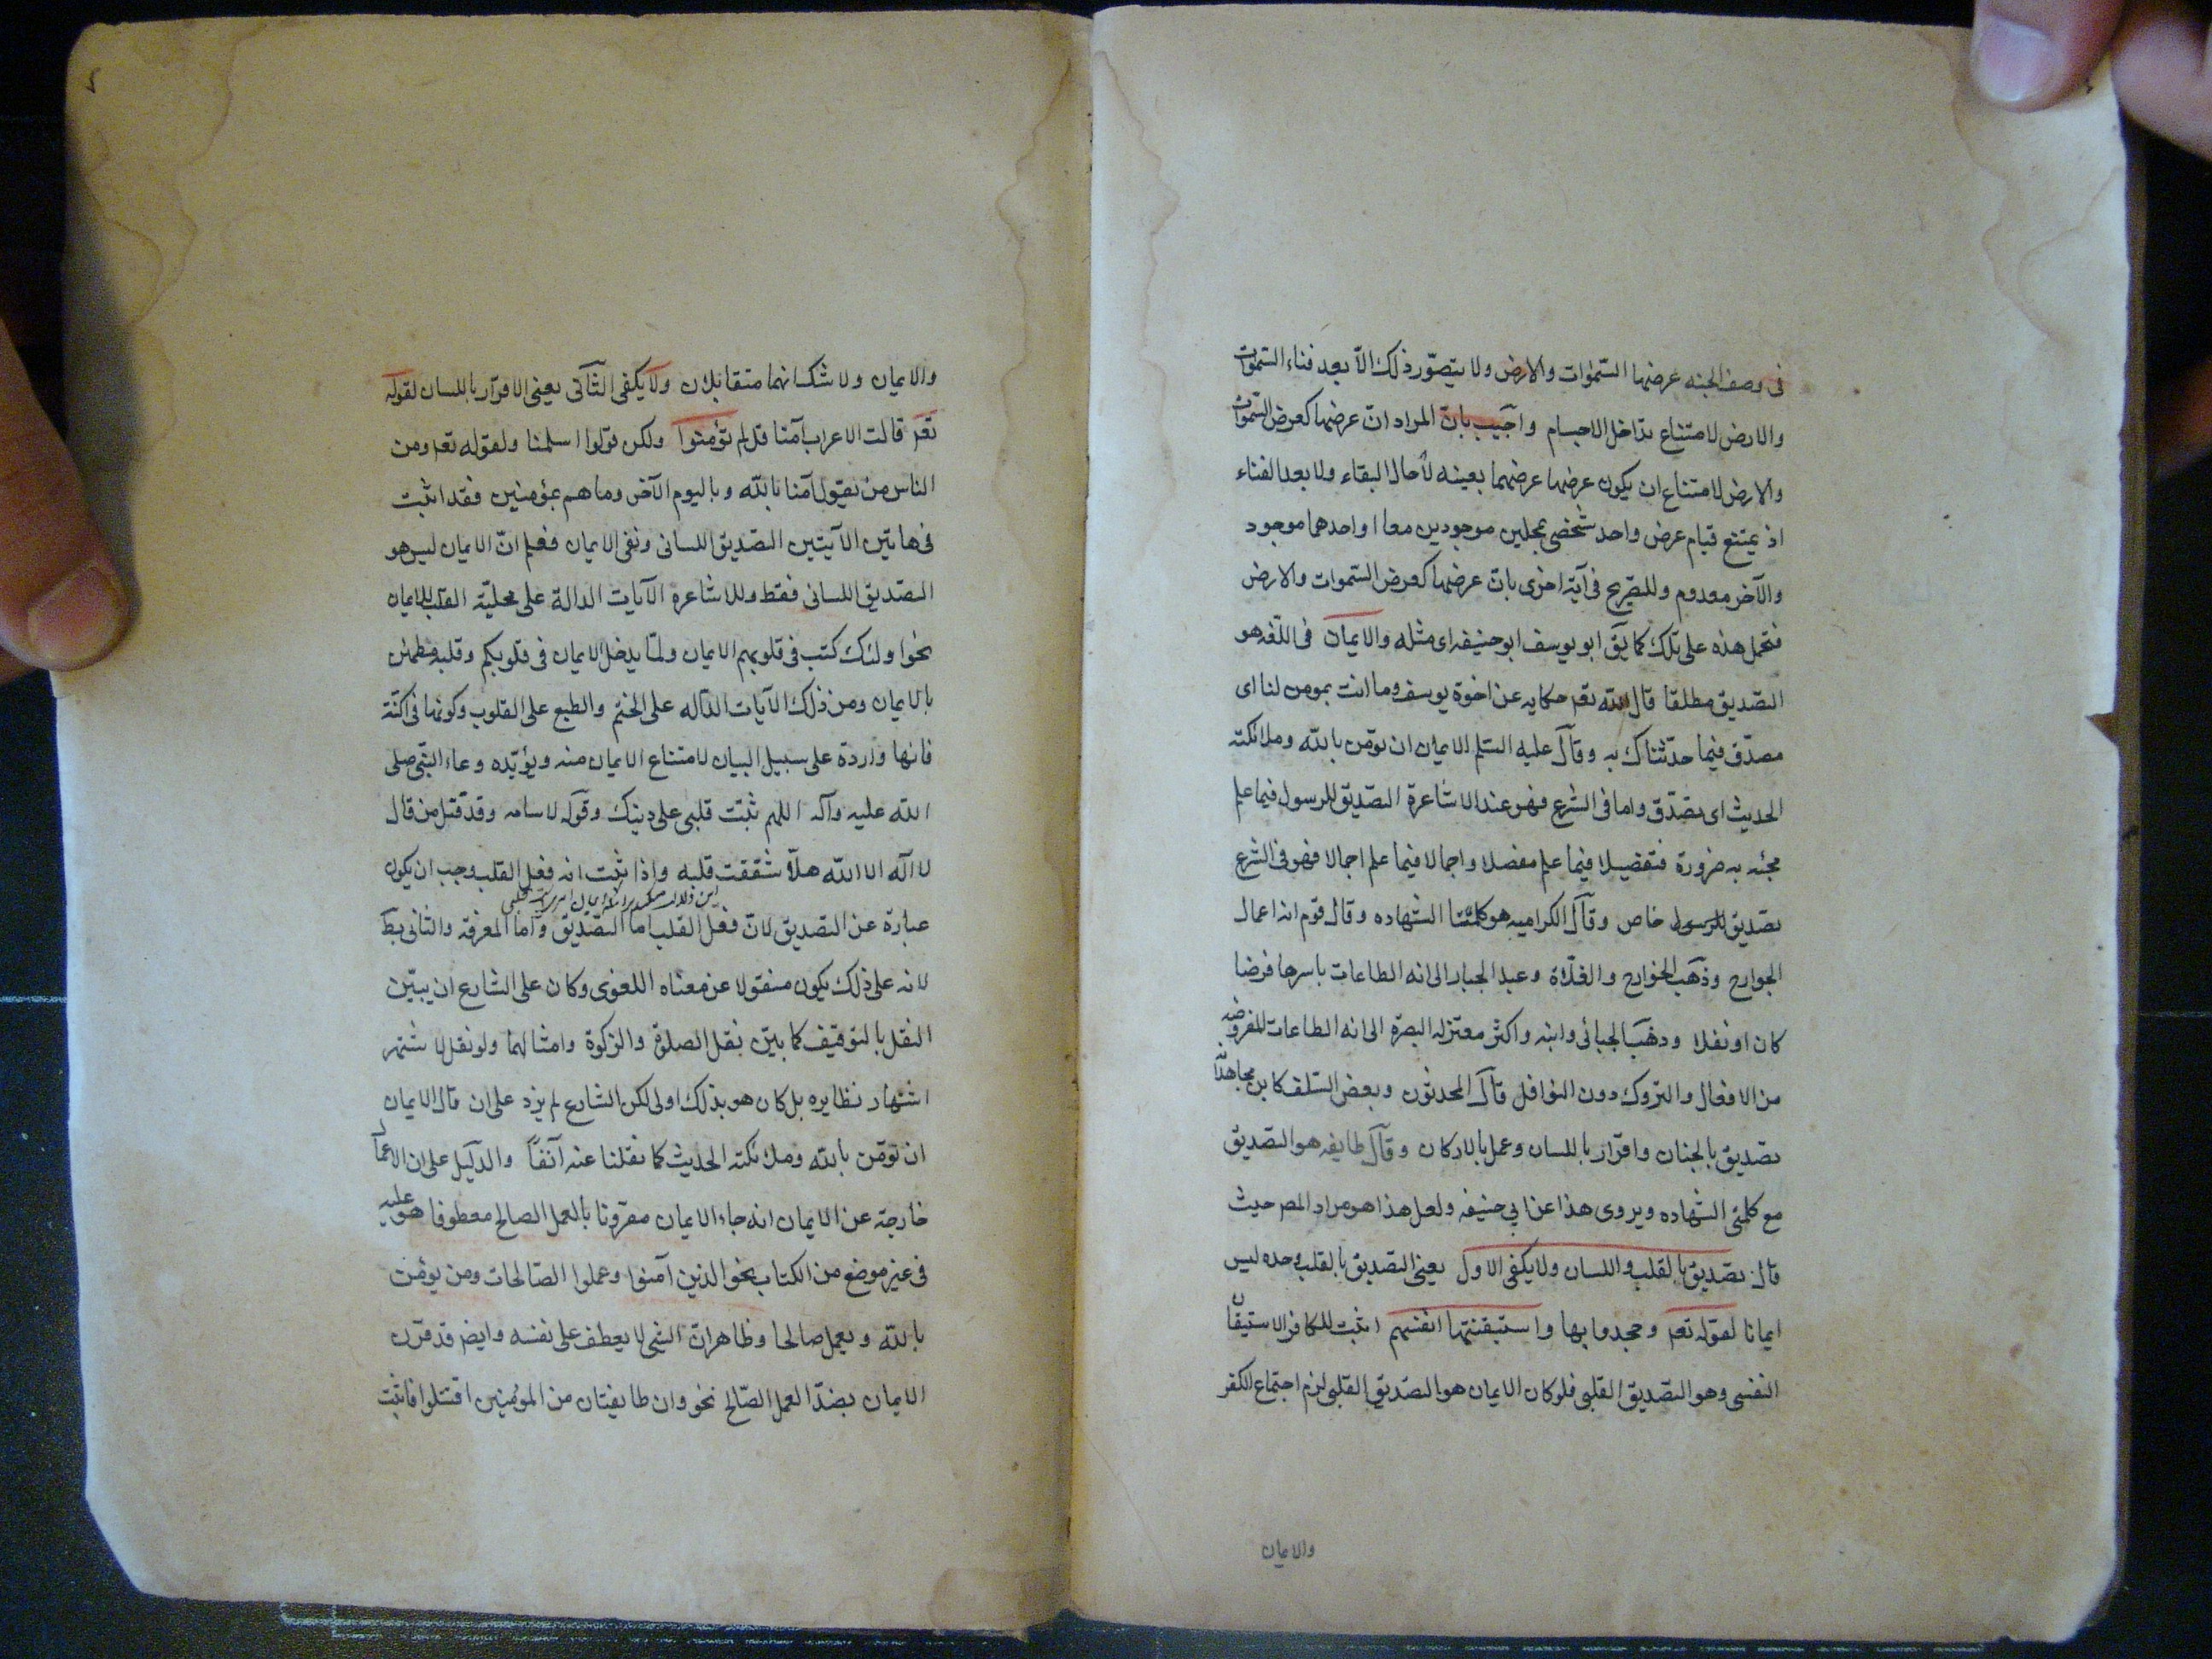 في وصف الجنه عرضها السموات والارض ولا يتصور ذلك الا بعد فناء السموات
والارض لامتناع تداخل الاجسام واجيب بان المراد ان عرضها كعرض السموات
والارض لامتناع ان يكون عرضها عرضهما بعينه لا حال البقاء ولا بعد الفناء
اذ يمتنع قيام عرض واحد شخصى بمحلين موجودين معا او احدهما موجود
والآخر معدوم وللتصريح فى آية اخرى بان عرضها كعرض السموات والارض
فتحمل هذه على تلك كما يق ابو يوسف ابو حنيفه اى مثله والايمان فى اللغه هو
التصديق مطلقا قال الله تعم حكايه عن اخوة يوسف وما انت بمومن لنا اى
مصدق فيما حدثناك به وقال عليه السلم الايمان ان تؤمن بالله وملائكته
الحديث اى تصدق واما فى الشرع فهو عند الاشاعرة التصديق للرسول فيما علم
مجئه به ضرورة فتفصيلا فيما علم مفصلا واجمالا فيما علم اجمالا فهو فى الشرع
تصديق للرسول خاص وقال الكراميه هو كلمتا الشهاده وقال قوم انه اعمال
الجوارح وذهب الخوارج والغلاة وعبد الجبار الى انه الطاعات باسرها فرضا
كان او نفلا وذهب الجبائى وابنه واكثر معتزله البصرة الى انه الطاعات المفروضه
من الافعال والتروك دون النوافل قال المحدثون وبعض السلف كابن مجاهد انه
تصديق بالجنان واقرار باللسان وعمل بالاركان وقال طايفه هو التصديق
مع كلمتى الشهاده ويروى هذا عن ابي حنيفه ولعل هذا هو مراد المص حيث
قال تصديق بالقلب واللسان ولا يكفى الاول يعنى التصديق بالقلب وحده ليس
ايمانا لقوله تعم وجحدوا بها واستيقنتها انفسهم اثبت للكافر الاستيقان
النفسى وهو التصديق القلبى فلو كان الايمان هو التصديق القلبى لزم اجتماع الكفر
والايمان
والايمان ولا شك انهما متقابلان ولا يكفى الثانى يعنى الاقرار باللسان لقوله
تعم قالت الاعراب آمنا قل لم تؤمنوا ولكن قولوا اسلمنا ولقوله تعم ومن
الناس من يقول آمنا بالله وباليوم الآخر وما هم بمؤمنين فقد اثبت
فى هاتين الآيتين التصديق اللسانى ونفى الايمان فعلم ان الايمان ليس هو
التصديق اللسانى فقط وللاشاعرة الآيات الدالة على محلية القلب للايمان
نحو اولئك كتب فى قلوبهم الايمان ولما يدخل الايمان فى قلوبكم وقلبه مطمئن
بالايمان ومن ذلك الآيات الداله على الختم والطبع على القلوب وكونها فى اكنة
فانها واردة على سبيل البيان لامتناع الايمان منه ويؤيده دعاء النبى صلى
الله عليه وآله اللهم ثبت قلبى على دينك وقوله لاسامه وقد قتل من قال
لا اله الا الله هلا شققت قلبه واذا ثبت انه فعل القلب وجب ان يكون
عبارة عن التصديق لان فعل القلب اما التصديق واما المعرفة والثانى بط
لانه على ذلك يكون منقولا عن معناه اللغوى وكان على الشارع ان يبين
النقل بالتوقيف كما بين نقل الصلوة والزكوة وامثالهما ولو نقل لاشتهر
اشتهار نظايره بل كان هو بذلك اولى لكن الشارع لم يزد على ان قال الايمان
ان تؤمن بالله وملائكته الحديث كما نقلنا عنه آنفا والدليل على ان الاعمال
خارجة عن الايمان انه جاء الايمان مقرونا بالعمل الصالح معطوفا هو عليه
فى غير موضع من الكتاب نحو الذين آمنوا وعملوا الصالحات ومن يؤمن
بالله ويعمل صالحا وظاهر ان الشى لا يعطف على نفسه وايضا قد قرن
الايمان بضد العمل الصالح نحو وان طايفتان من المؤمنين اقتتلوا فاثبت